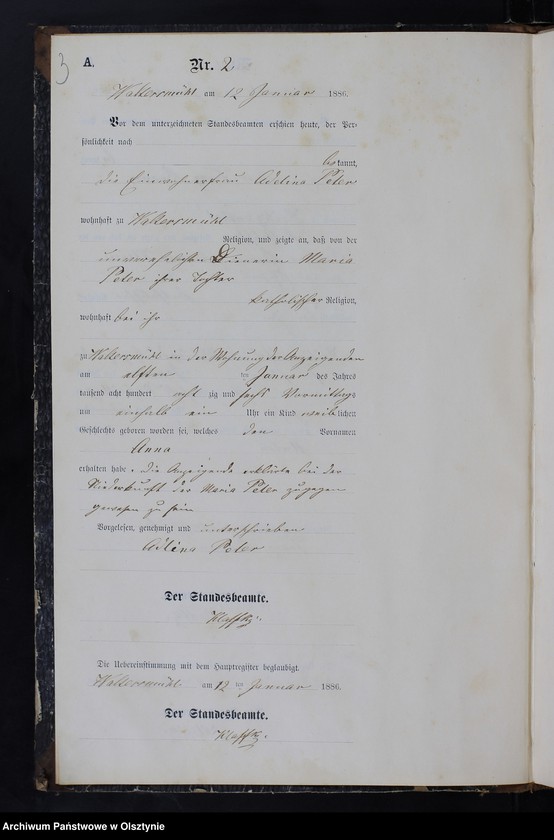 3
A.
Nr. 2
Waltersmühl am 12 Januar 1886.
Vor dem unterzeichneten Standesbeamten erschien heute, der Per-
sönlichkeit nach
be kannt,
die Einwohnerfrau Adelina Peter
wohnhaft zu Waltersmühl
Religion, und zeigte an, daß von der
unverehelichten Dienerin Maria
Peter ihrer Tochter
katholischer Religion,
wohnhaft bei ihr
zu Waltersmühl in der Wohnung der Anzeigenden
am elften ten Januar des Jahres
tausend acht hundert acht zig und sechs Vormittags
um einhalb ein Uhr ein Kind weib lichen
Geschlechts geboren worden sei, welches den Vornamen
Anna
erhalten habe. die Anzeigende erklärte bei der
Niederkunft der Maria Peter zugegen
gewesen zu sein
Vorgelesen, genehmigt und unterschrieben
Adlina Peter
Der Standesbeamte.
Klaffki.
Die Uebereinstimmung mit dem Hauptregister beglaubigt.
Waltersmühl am 12 ten Januar 1886.
Der Standesbeamte.
Klaffki.
Archiwum Państwowe w Olsztynie